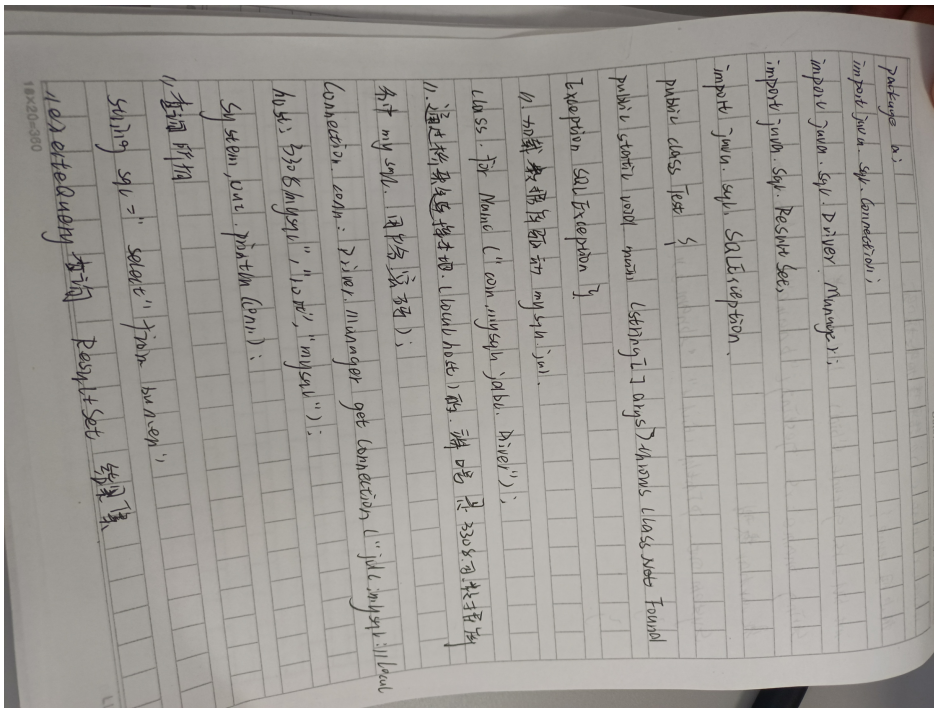 package a;
import java.sql.Connection;
import java.sql.DriverManager;
import java.sql.ResultSet;
import java.sql.SQLException.
public class Test {
public static void main (String[] args) throws ClassNotFound
Exception SQLException {
//.加载数据库驱动 mysql.jar.
class.forName ("com.mysql.jdbc.Driver");
//.通过 连接本机(localhost)的.端口号是3306的数据库
mysql. 密码);
Connection. conn: Driver.manager get Connection ("jdbc:mysql://local
host:3306/mysql","root","mysql"):
System.out.println(conn):
//查询所有
String sql=" select" from
//executeQuery查询 ResultSet 结果集
18×20=360